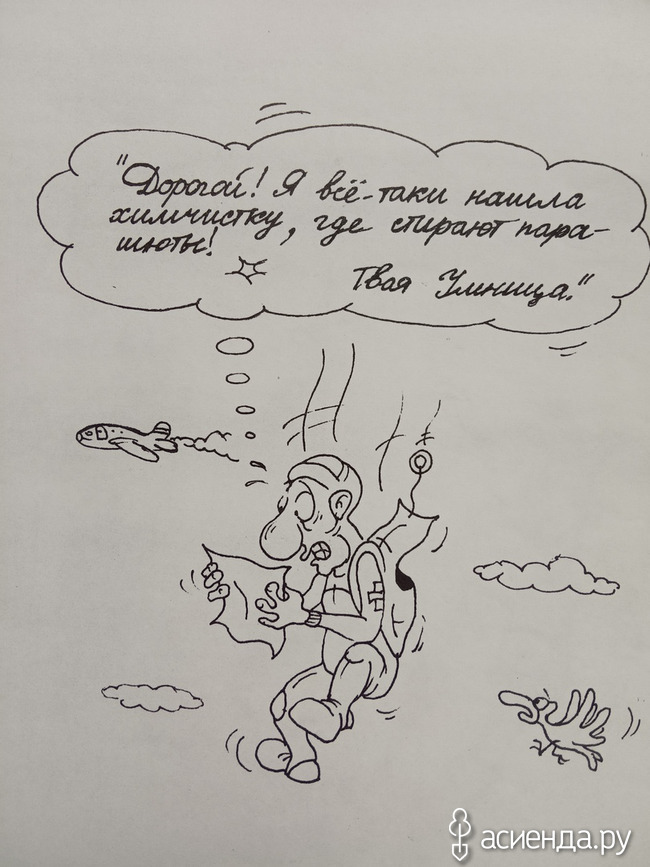 "Дорогой! Я всё-таки нашла
химчистку, где стирают пара-
шюты!
Твоя Умница."
асиенда.ру